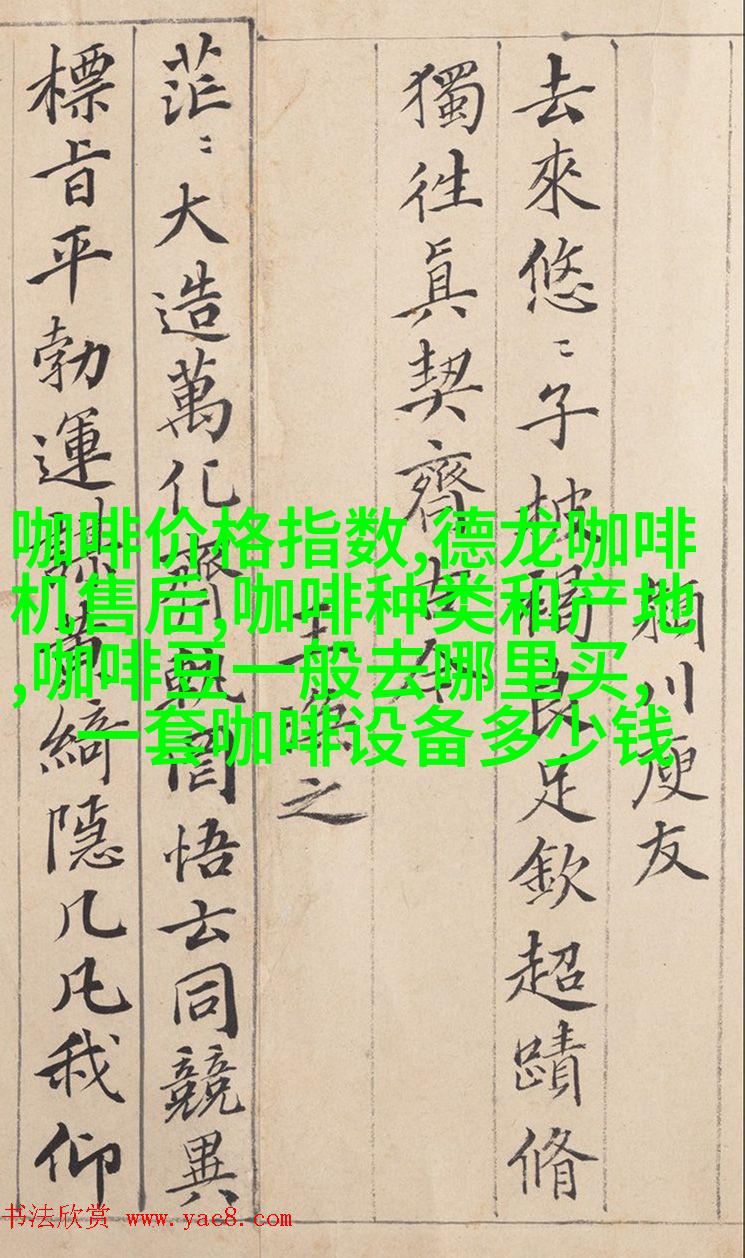 川庾友
去來悠〻子披褐良足欽超蹟脩
獨往眞契齊古今
王之
茫〻大造萬化齊軌罔悟玄同競異
標旨平勃運謀黃綺隱几凡我仰
咖啡价格指数,德龙咖啡
机售后,咖啡种类和产地
,咖啡豆一般去哪里买,
一套咖啡设备多少钱
书法欣赏 www.yac8.com